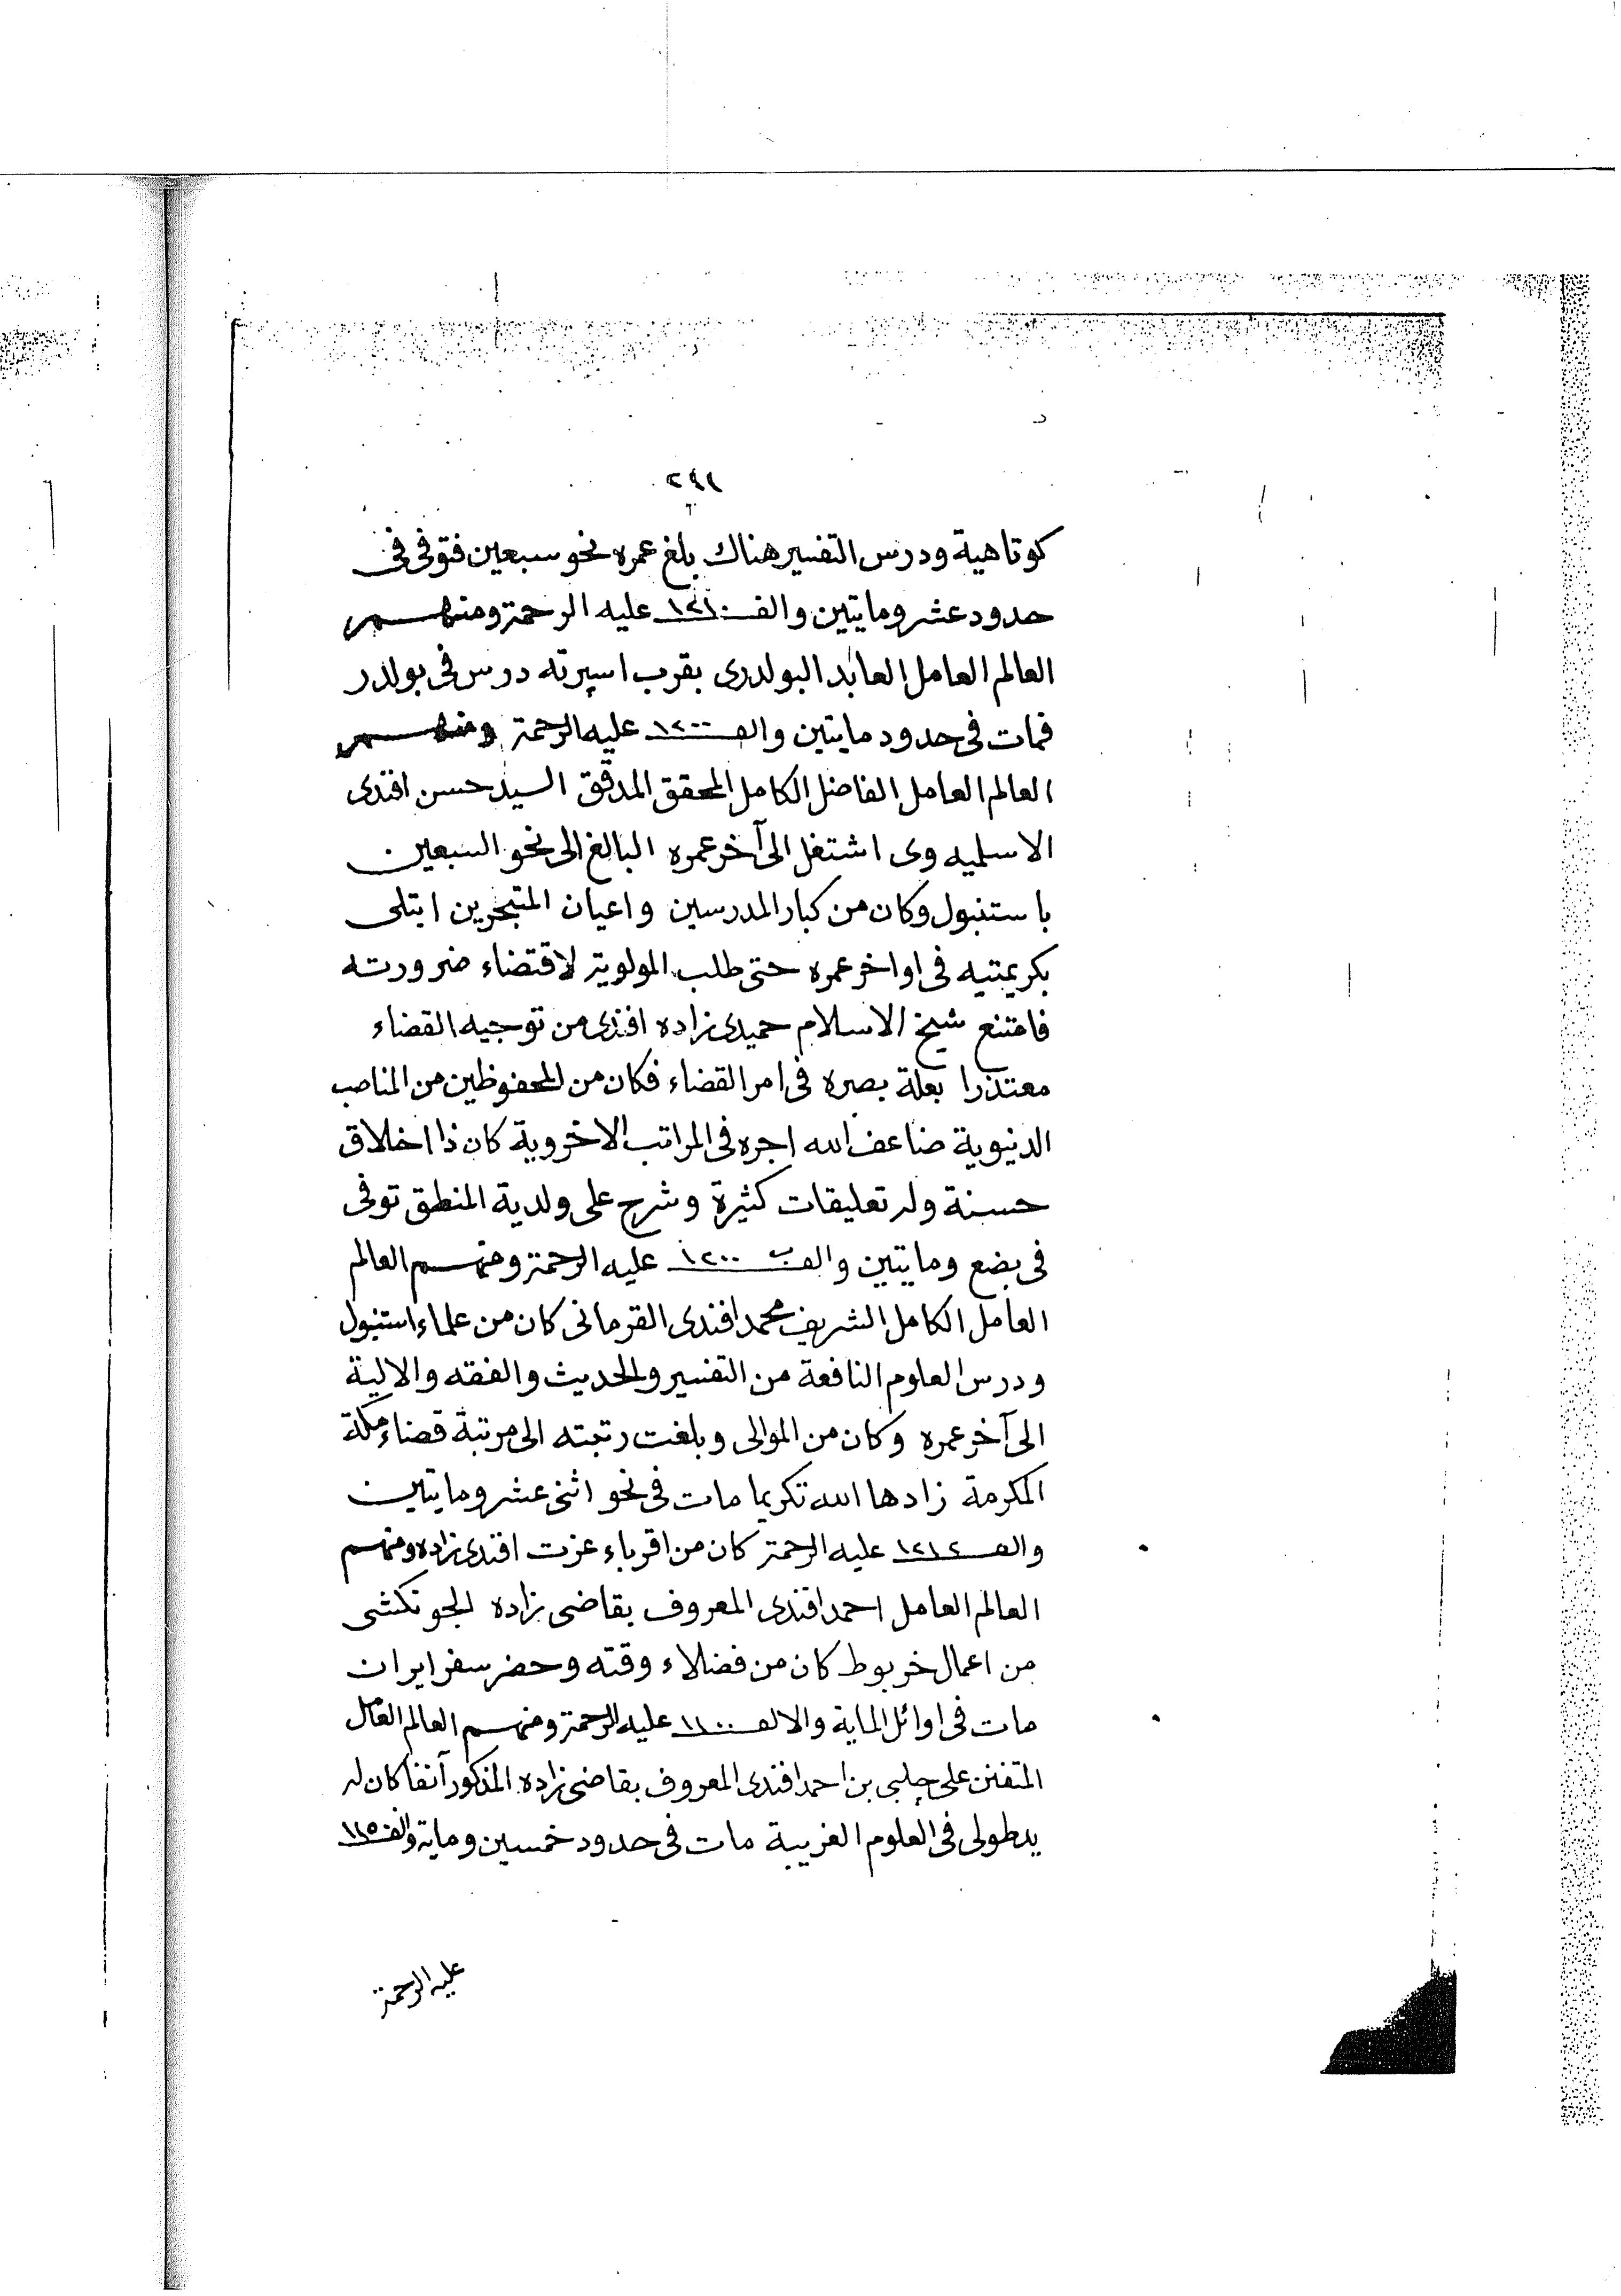 ٢٩١
كوتاهية ودرس التفسير هناك بلغ عمره نحو سبعين فتوفى فى
حدود عشر ومايتين والف ١٢١٠ عليه الرحمة ومنهم
العالم العامل العابد البولدرى بقرب اسپرته درس فى بولدر
فمات فى حدود مايتين والف ١٢٠٠ عليه الرحمة ومنهم
العالم العامل الفاضل الكامل المحقق المدقّق السيد حسن افندى
الاسلميه وى اشتغل الى آخر عمره البالغ الى نحو السبعين
باستنبول وكان من كبار المدرسين واعيان المتبحرين ابتلى
بكريمتيه فى اواخر عمره حتى طلب المولوية لاقتضاء ضرورته
فامتنع شيخ الاسلام حميدى زاده افندى من توجيه القضاء
معتذرا بعلة بصره فى امر القضاء فكان من المحفوظين من المناصب
الدنيوية ضاعف الله اجره فى المراتب الاخروية كان ذا اخلاق
حسنة وله تعليقات كثيرة وشرح على ولدية المنطق توفى
فى بضع ومايتين والف ١٢٠٠ عليه الرحمة ومنهم العالم
العامل الكامل الشريف محمد افندى القرمانى كان من علماء استنبول
ودرس العلوم النافعة من التفسير والحديث والفقه والالية
الى آخر عمره وكان من الموالى وبلغت رتبته الى مرتبة قضاء مكة
المكرمة زادها الله تكريما مات فى نحو اثنى عشر ومايتين
والف ١٢١٢ عليه الرحمة كان من اقرباء عزت افندى زاده ومنهم
العالم العامل احمد افندى المعروف بقاضى زاده الجو نكشى
من اعمال خربوط كان من فضلاء وقته وحضر سفر ايران
مات فى اوائل الماية والالف ١١٠٠ عليه الرحمة ومنهم العالم العامل
المتفنن على چلبى بن احمد افندى المعروف بقاضى زاده المذكور آنفا كان له
يد طولى فى العلوم الغريبة مات فى حدود خمسين وماية والف ١١٥
عليه الرحمة